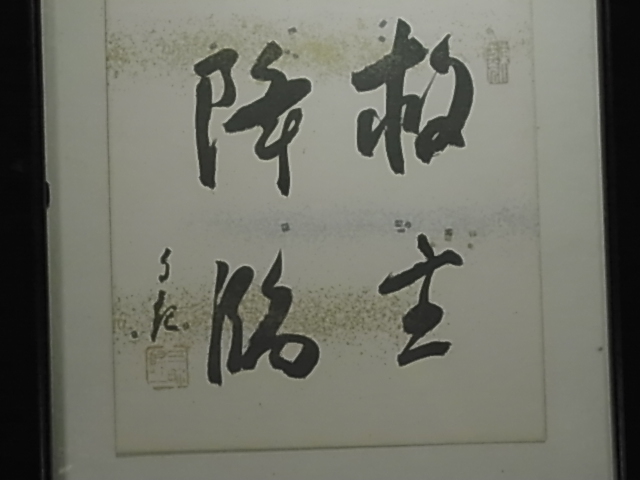 救主
降臨